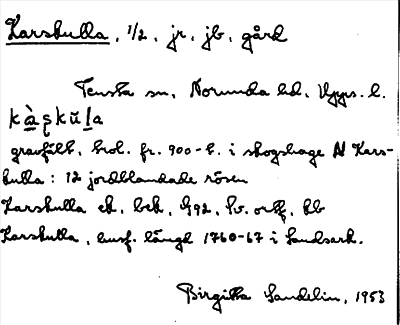 Karskulla, 1/2, jr, jb, gård
Tensta sn, Norunda hd, Upps. l.
kàskŭla
gravfält, trol. fr. 900-t. i skogshage N Kars-
kulla: 12 jordblandade rösen
Karskulla ek, bek, G92, Sv. ortf, kb
Karskulla, husf. längd 1760-67 i Landsark.
Birgitta Sandelin, 1953